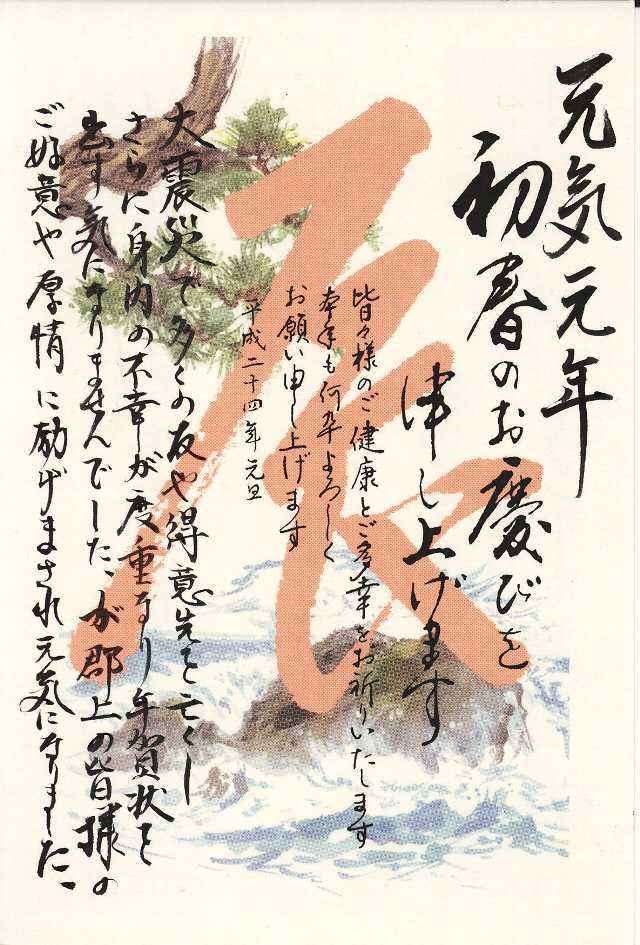 元気元年
初春のお慶びを
申し上げます
皆々様のご健康とご多幸をお祈りいたします
本年も何卒よろしく
お願い申し上げます
平成二十四年元旦
大震災で多くの友や得意先を亡くし
さらに身内の不幸が度重なり年賀状を
出す気になりませんでした、が郡上の皆様の
ご好意や厚情に励げまされ元気になりました、
辰